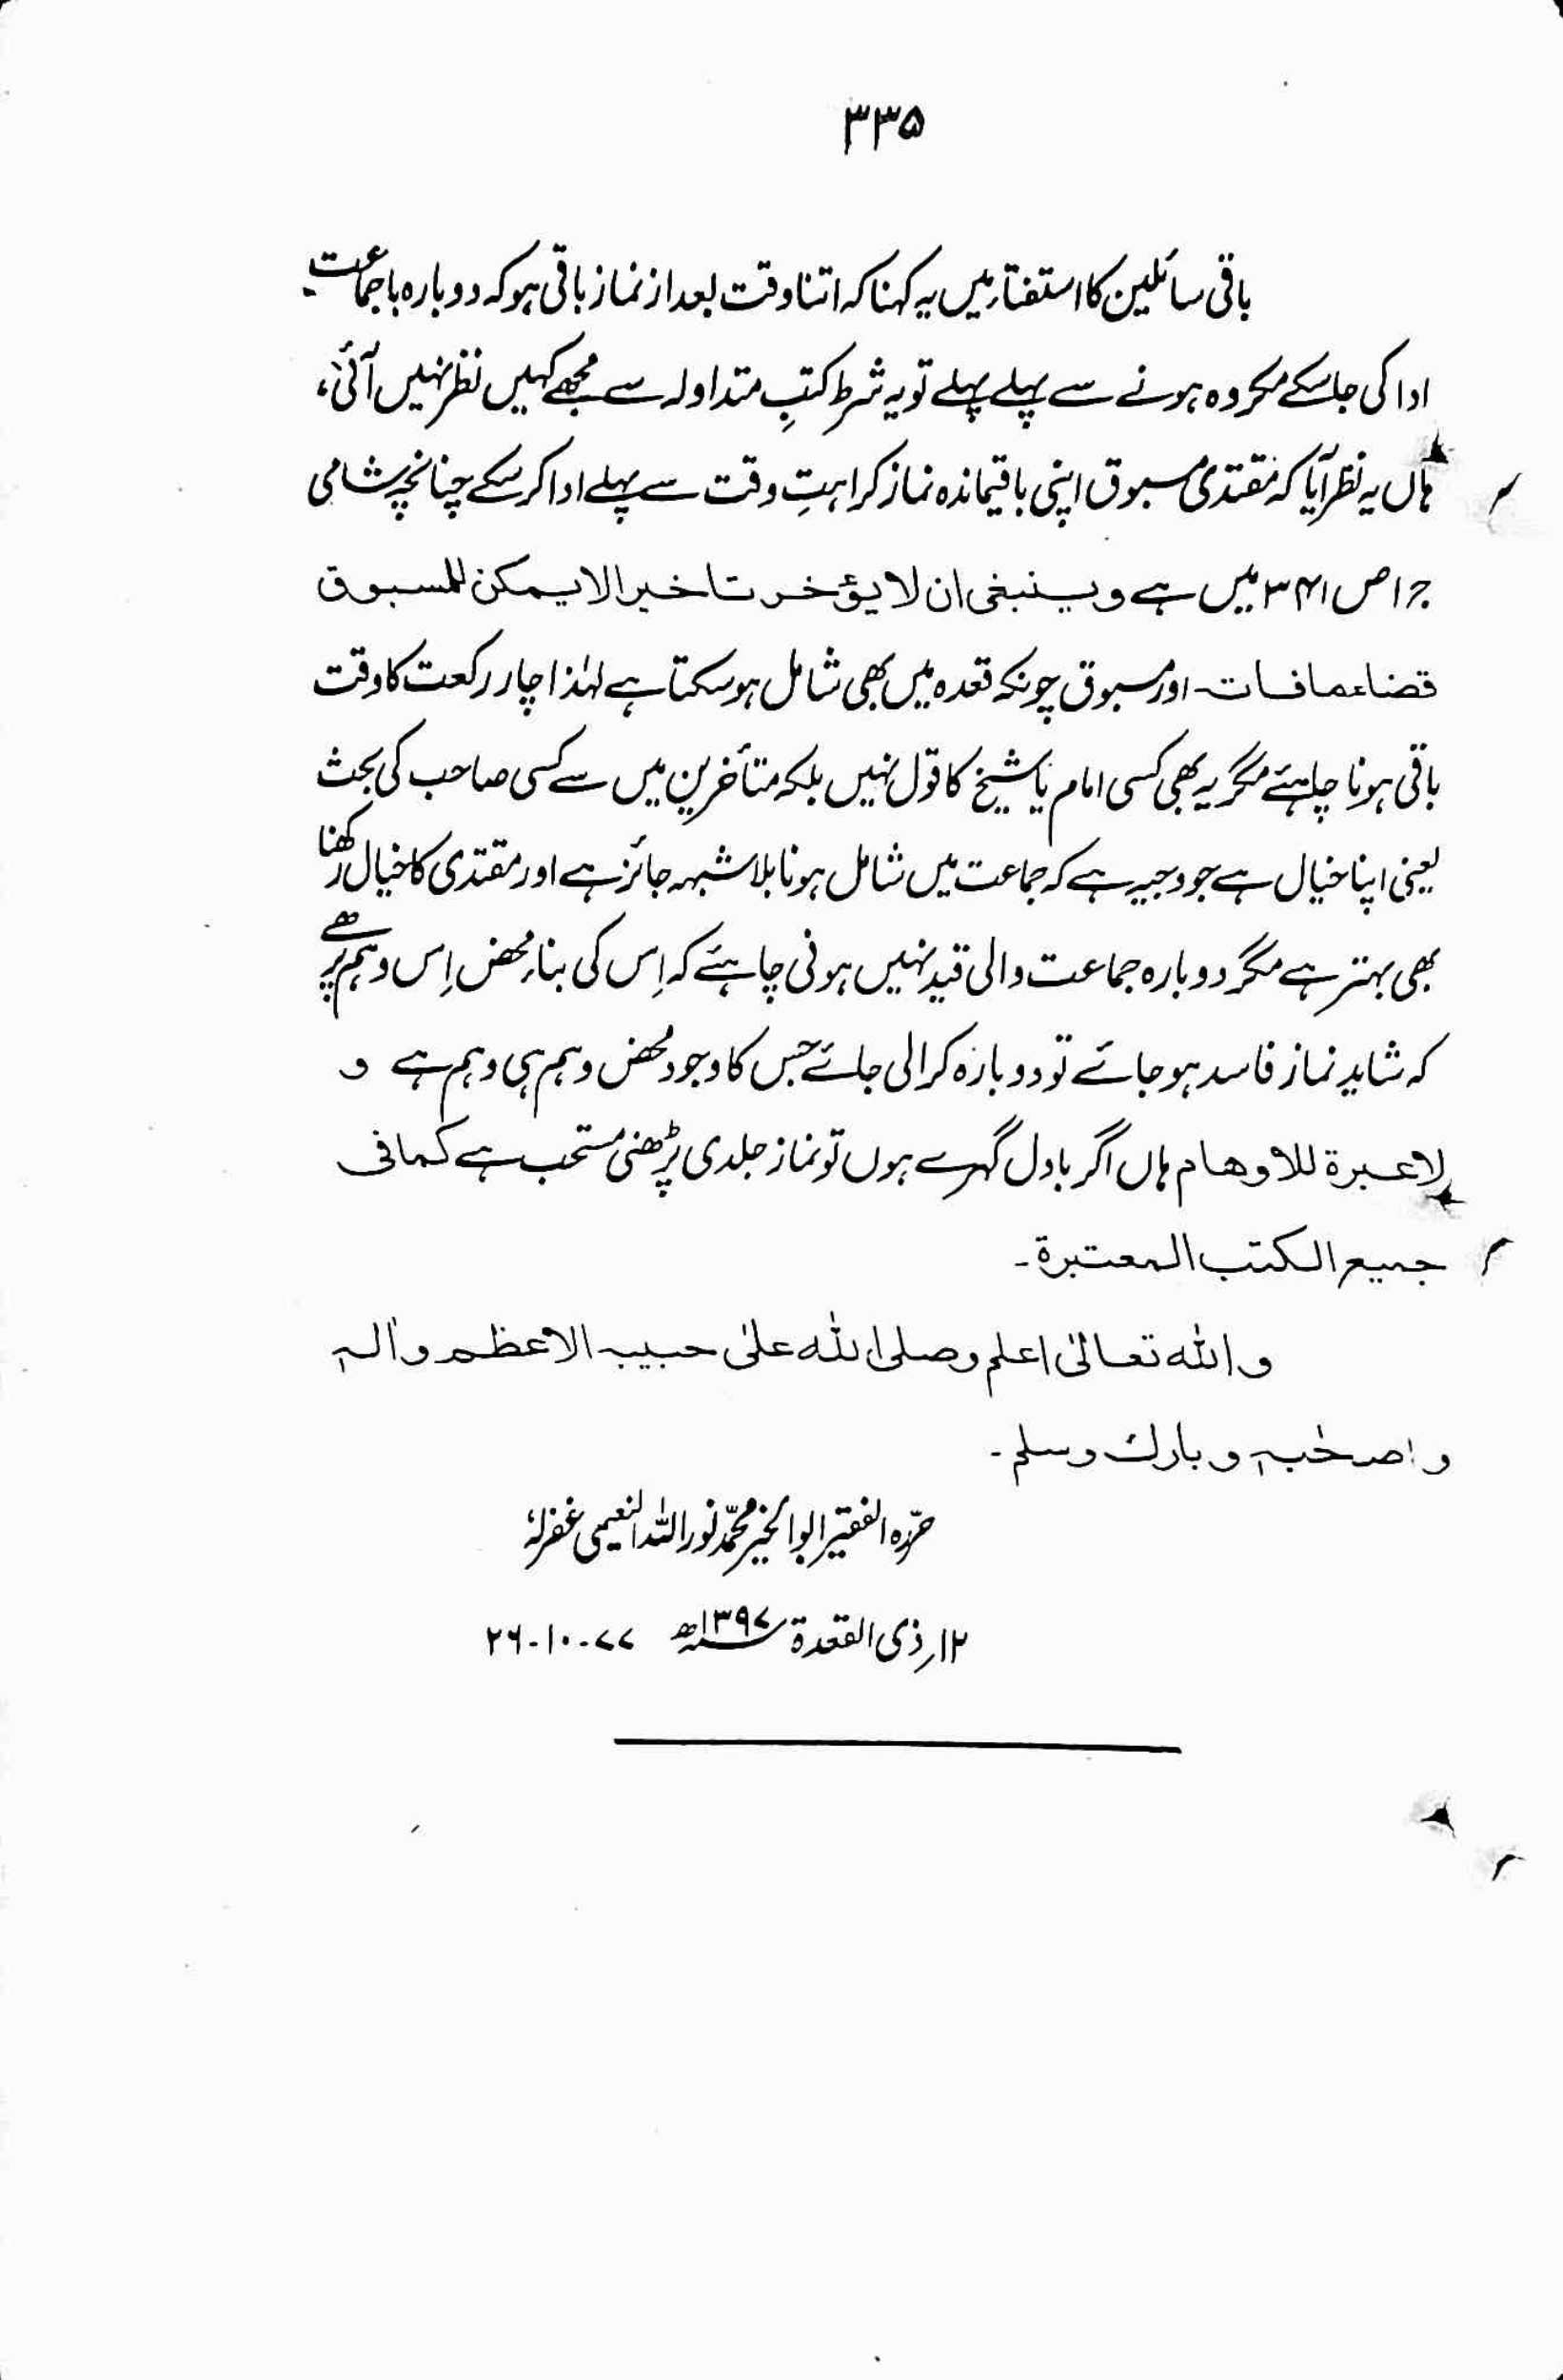 ۳۳۵
باقی سائلین کا استفتاء میں یہ کہنا کہ اتنا وقت بعد از نماز باقی ہو کہ دوبارہ باجماعت
ادا کی جاسکے مکروہ ہونے سے پہلے پہلے تو یہ شرط کتبِ متداولہ سے مجھے کہیں نظر نہیں آئی،
ہاں یہ نظر آیا کہ مقتدی مسبوق اپنی باقیماندہ نماز کراہتِ وقت سے پہلے ادا کر سکے چنانچہ شامی
ج ۱ ص ۳۴۱ میں ہے وینبغی ان لا یؤخر تاخیرا لا یمکن للمسبوق
قضاء مافات۔ اور مسبوق چونکہ قعدہ میں بھی شامل ہو سکتا ہے لہٰذا چار رکعت کا وقت
باقی ہونا چاہئے مگر یہ بھی کسی امام یا شیخ کا قول نہیں بلکہ متأخرین میں سے کسی صاحب کی بحث
یعنی اپنا خیال ہے جو وجیہ ہے کہ جماعت میں شامل ہونا بلاشبہہ جائز ہے اور مقتدی کا خیال رکھنا
بھی بہتر ہے مگر دوبارہ جماعت والی قید نہیں ہونی چاہئے کہ اِس کی بناء محض اِس وہم پر ہے
کہ شاید نماز فاسد ہو جائے تو دوبارہ کرالی جائے جس کا وجود محض وہم ہی وہم ہے و
لاعبرة للاوهام ہاں اگر بادل گہرے ہوں تو نماز جلدی پڑھنی مستحب ہے کما فی
جمیع الکتب المعتبرة۔
واللہ تعالیٰ اعلم وصلی اللہ علیٰ حبیبہ الاعظم واٰلہٖ
واصحٰبہٖ وبارک وسلم۔
حرّرہ الفقیر ابوالخیر محمّد نور اللہ النعیمی غفرلہٗ
۱۲؍ ذی القعدة سنہ ۱۳۹۷ھ ۲۶-۱۰-۷۷